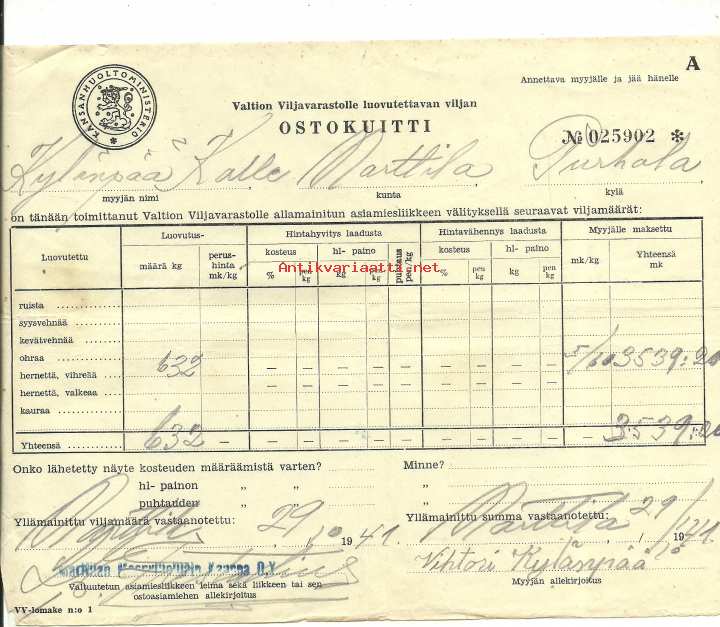 A
KANSANHUOLTOMINISTERIÖ *
Annettava myyjälle ja jää hänelle
Valtion Viljavarastolle luovutettavan viljan
OSTOKUITTI
№ 025902 *
Kylänpää Kalle Marttila
myyjän nimi kunta kylä
on tänään toimittanut Valtion Viljavarastolle allamainitun asiamiesliikkeen välityksellä seuraavat viljamäärät:
Luovutettu Luovutus- Hintahyvitys laadusta Hintavähennys laadusta Myyjälle maksettu
määrä kg perus-hinta mk/kg kosteus hl- paino puhtaus pen./kg kosteus hl- paino mk/kg Yhteensä mk
% pen kg kg kg % pen kg kg pen kg
Antikvariaatti.net
ruista
syysvehnää
kevätvehnää
ohraa 632 5/60 3539:20
hernettä, vihreää — — — — — — — — —
hernettä, valkeaa — — — — — — — — —
kauraa
Yhteensä 632 — — — — — — — — — — — 3539:20
Onko lähetetty näyte kosteuden määräämistä varten? Minne?
hl- painon „ „ „
puhtauden „ „ „
Yllämainittu viljamäärä vastaanotettu: 29/10 1941. Yllämainittu summa vastaanotettu: Marttila 29/10 1941
Vihtori Kylänpää
Valtuutetun asiamiesliikkeen leima sekä liikkeen tai sen Myyjän allekirjoitus
ostoasiamiehen allekirjoitus
VV-lomake n:o 1